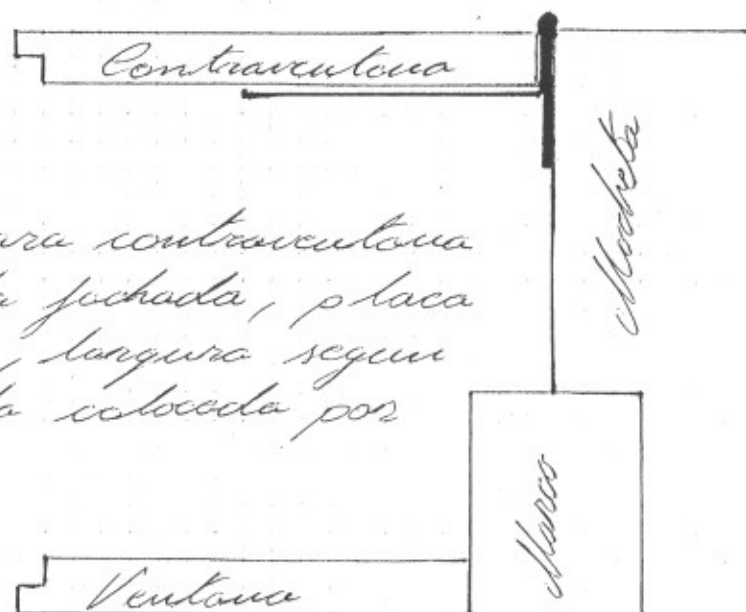 Contraventana
ara contraventana
a fachada, placa
, langura segun
a colocada por
Mocheta
Marco
Ventana